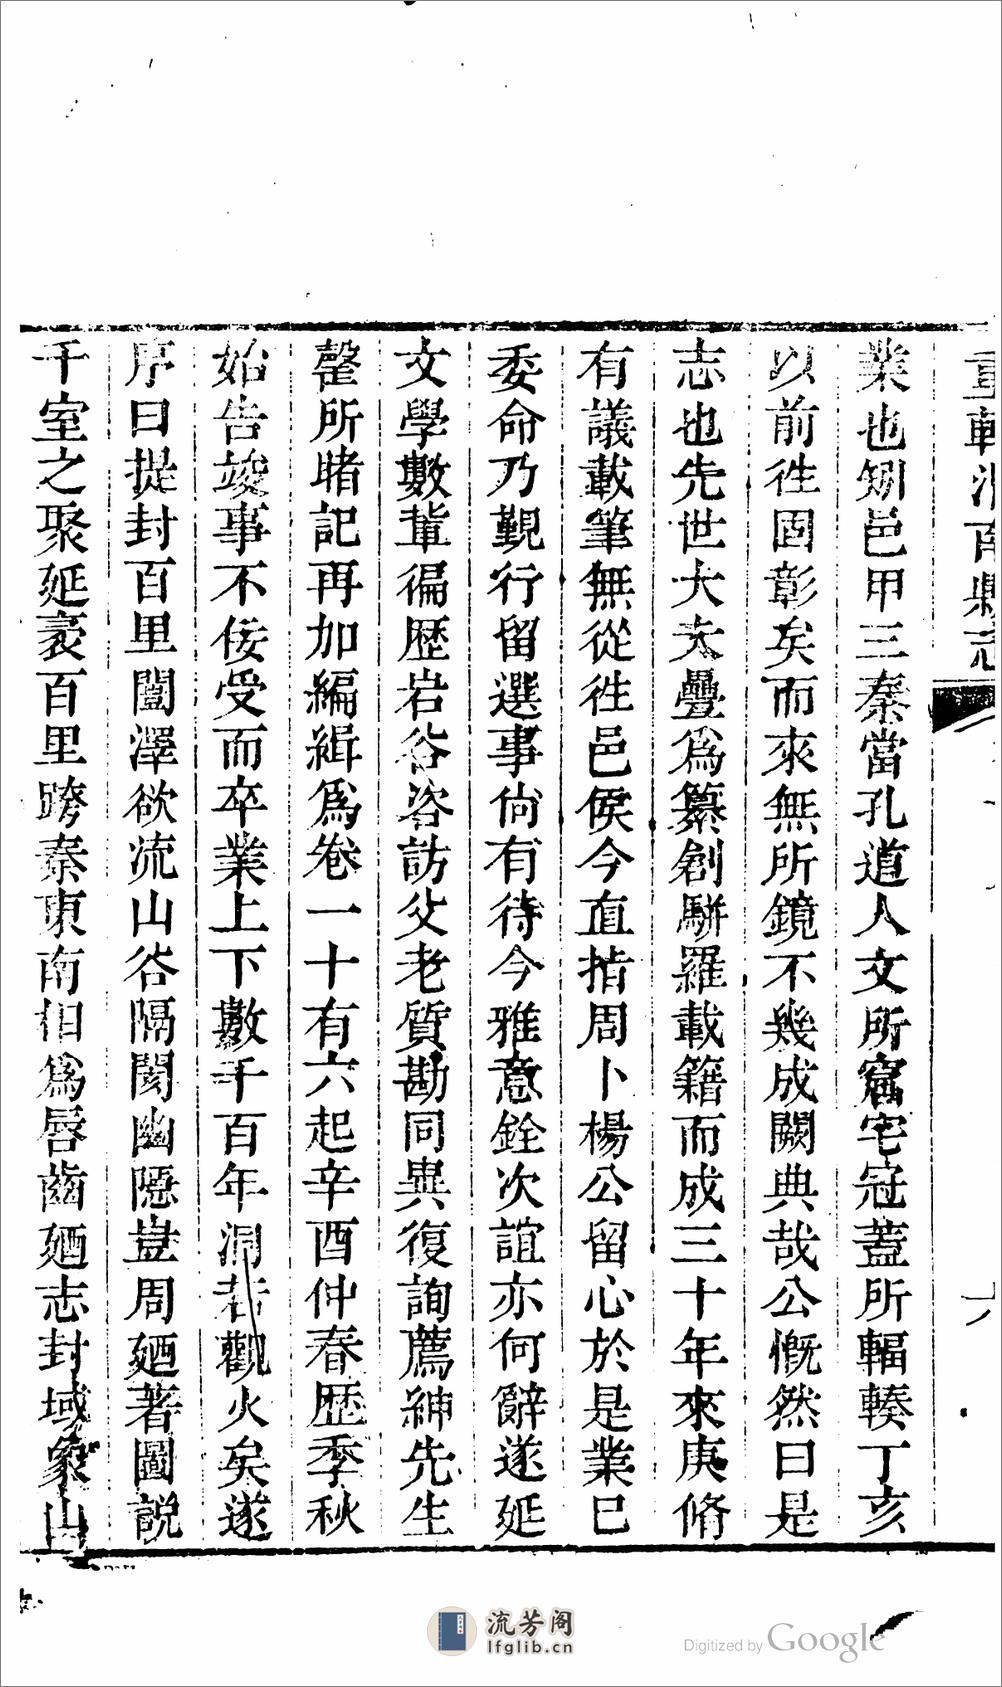 重輯渭南縣志
業也矧邑甲三秦當孔道人文所窟宅冠蓋所輻輳丁亥
以前徃固彰矣而來無所鏡不幾成闕典哉公慨然曰是
志也先世大夫疊為纂創駢羅載籍而成三十年來庚脩
有議載筆無從徃邑侯今直指周卜楊公留心於是業已
委命乃覲行留選事尙有待今雅意銓次誼亦何辭遂延
文學數軰徧歷岩谷咨訪父老質勘同異復詢薦紳先生
罄所睹記再加編緝為卷一十有六起辛酉仲春歷季秋
始告竣事不佞受而卒業上下數千百年洞若觀火矣遂
序曰提封百里闓澤欲流山谷隔閡幽隱豈周廼著圖說
千室之聚延袤百里跨秦東南相為唇齒廼志封域象山
流芳阁
lfglib.cn
Digitized by Google